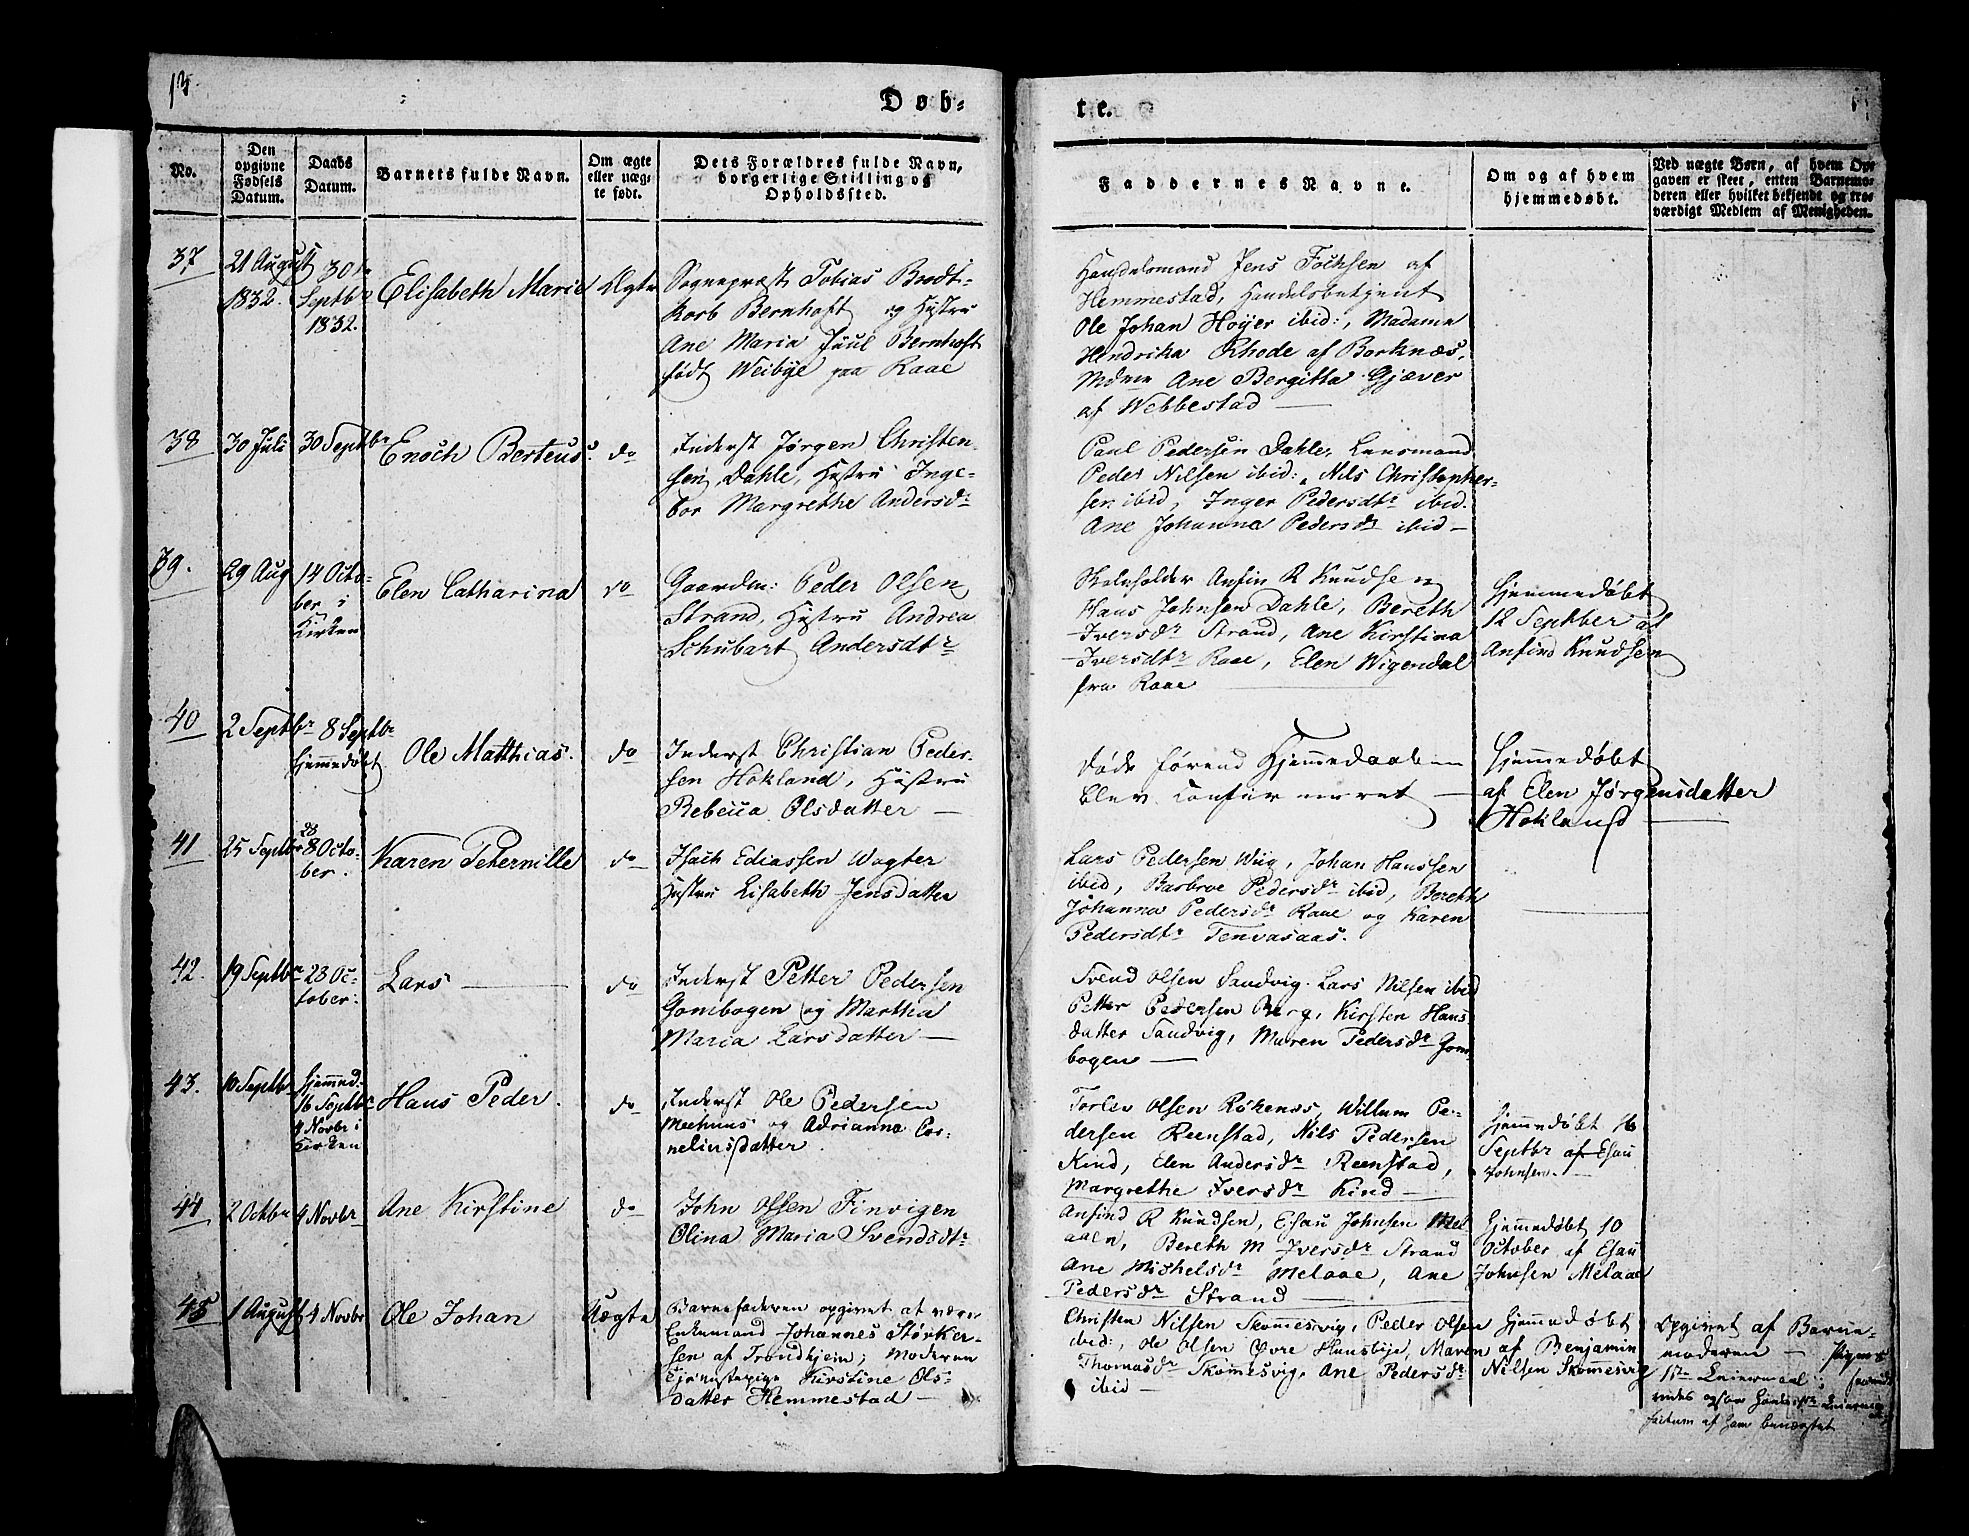 Døb-
te.
No.
Den
opgivne
Fødsels
Datum.
Daabs
Datum.
Barnets fulde Navn.
Om ægte
eller uæg-
te født.
Dets Forældres fulde Navn,
borgerlige Stilling og
Opholdssted.
Faddernes Navne.
Om og af hvem
hjemmedøbt.
Ved uægte Børn, af hvem Op-
gaven er skeet, enten Barnemo-
deren eller hvilket bekjendt og tro-
værdigt Medlem af Menigheden.
37
21 August
1832.
30te
Septbr
1832.
Elisabeth Marie
Ægte
Sognepræst Tobias Brodt-
korb Bernhoft og Hustru
Ane Maria Juul Bernhoft
født Weibye paa Raae
Handelsmand Jens Fochsen af
Hemmestad, Handelsbetjent
Ole Johan Hoyer ibid:, Madame
Hendrika Rhode af Borknæs,
Mdme Ane Bergitta Gjæver
af Webbestad —
38
30 Juli
30 Septbr
Enoch Berteus.
do
Inderst Jørgen Christen-
sen Dahle, Hustru Inge-
bor Margrethe Andersdr
Paul Pedersen Dahle, Lensmand
Peder Nilsen ibid:, Nils Christopher-
sen ibid, Inger Pedersdtr ibid.
Ane Johanna Pedersdr ibid —
39.
29 Aug
14 Octo-
ber i
Kirken
Elen Catharina
do
Gaardm: Peder Olsen
Strand, Hustru Andrea
Schubart Andersdtr
Skoleholder Anfin R Knudsen
Hans Johnsen Dahle, Bereth
Iversdr Strand, Ane Kirstina
Iversdtr Raae, Elen Wigendal
fra Raae
Hjemmedøbt
12 Septber af
Anfind Knudsen
40
2 Septbr
8 Septbr
hjemmedøbt
Ole Matthias.
do
Inderst Christian Peder-
sen Hokland, Hustru
Rebecca Olsdatter —
døde førend Hjemmedaaben
blev confirmeret —
Hjemmedøbt
af Elen Jørgensdatter
Hokland —
41
25 Septbr
28
8 Octo-
ber.
Karen Peternille
do
Isach Ediassen Wogter
Hustru Lisabeth Jensdatter
Lars Pedersen Wiig, Johan Hanssen
ibid, Barbroe Pedersdr ibid, Bereth
Johanna Pedersdr Raae og Karen
Pedersdtr Tenvasaas.
42.
19 Septbr
28 Oc-
tober.
Lars —
do
Inderst Petter Pedersen
Gombogen og Marthia
Maria Larsdatter —
Svend Olsen Sandvig. Lars Nilsen ibid
Petter Pedersen Berg, Kirsten Hans
datter Sandvig, Maren Pedersdr Gom-
bogen —
43.
10 Septbr
hjemmed.
16 Septbr
4 Novbr i
Kirken
Hans Peder.
do
Inderst Ole Pedersen
Meehuus og Adrianna Cor-
neliusdatter.
Torlev Olsen Røkenes, Willum Pe-
dersen Reenstad, Nils Pedersen
Kind, Elen Andersdr Reenstad,
Margrethe Iversdr Kind —
Hjemmedøbt 16
Septbr af Esau
Johnsen. —
44
2 Octbr
4 Novbr
Ane Kirstine
do
John Olsen Finvigen
Olina Maria Svendsdtr
Anfind R Knudsen, Esau Johnsen Mel
aaen, Bereth M Iversdr Strand
Ane Michelsdr Melaae, Ane
Pedersdr Strand —
Hjemmedøbt 10
October af Esau
Johnsen Melaae
45
1 August
4 Novbr
Ole Johan
Uægte
Barnefaderen opgivet at være
Enkemand Johannes Størker-
sen af Trondhjem; Moderen
Tjenestepige Kirstine Ols-
datter Hemmestad —
Christen Nilsen Skommesvig, Peder Olsen
ibid:, Ole Olsen Øvre Huusbye, Maren
Thomasdr Skommesvig, Ane Pedersdr
ibid —
Hjemmedøbt
af Benjamin
Nilsen Skommesvig
Opgivet af Barne-
moderen — Pigens
1ste Leiermaal;
factum af ham benægtet